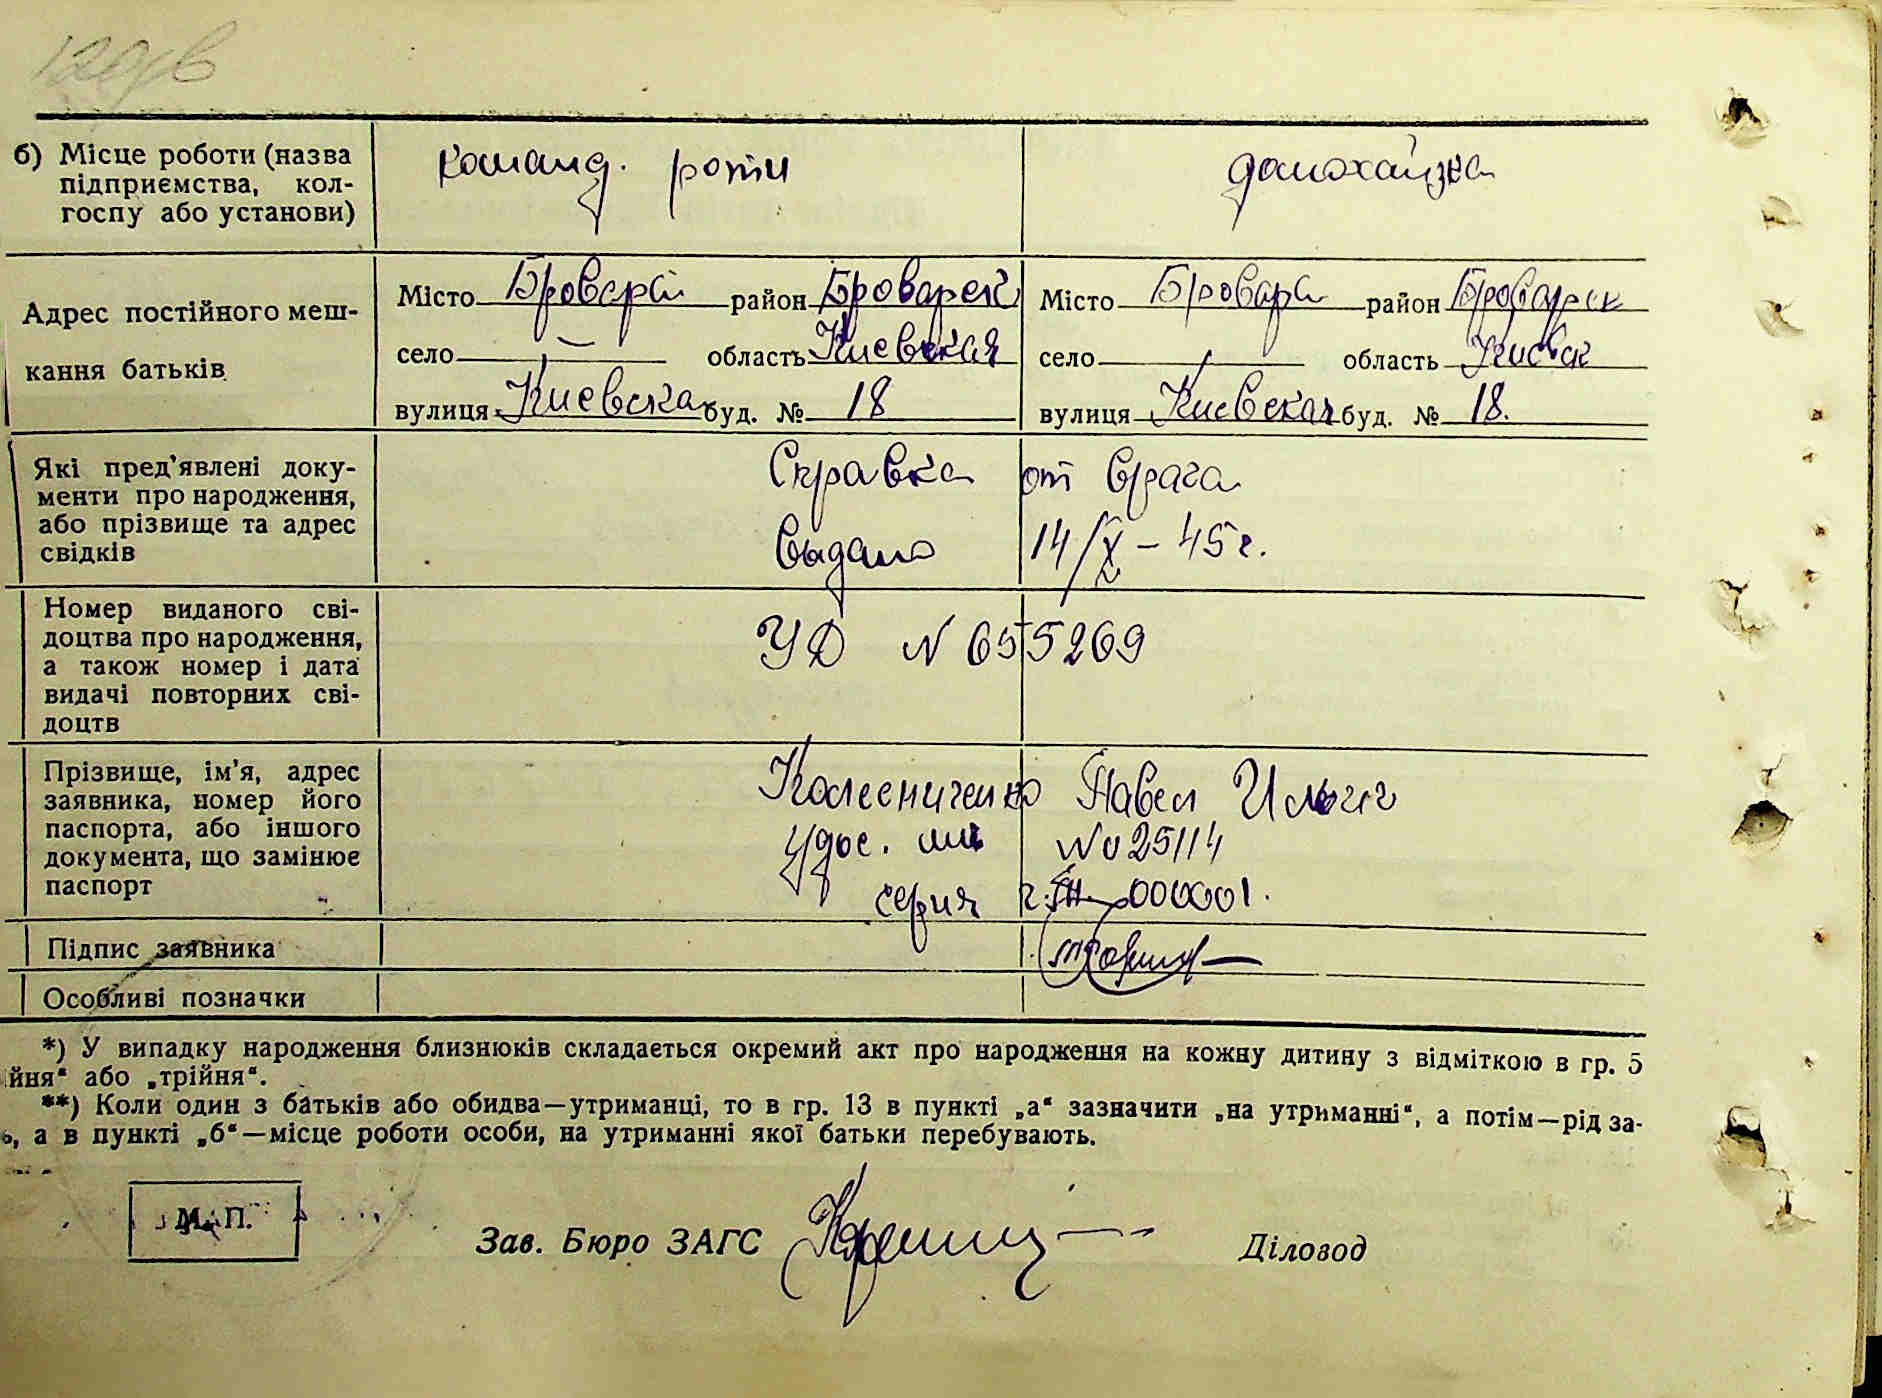 б) Місце роботи (назва підприємства, кол-госпу або установи)
команд. роти
домохаузка
Адрес постійного меш-
кання батьків
Місто Бровари район Броварск
село — область Киевская
вулиця Киевская буд. № 18
Місто Бровара район Броварск
село область Киевск
вулиця Киевская буд. № 18.
Які пред'явлені доку-
менти про народження,
або прізвище та адрес
свідків
Справка от врача
выдано 14/X – 45 г.
Номер виданого сві-
доцтва про народження,
а також номер і дата
видачі повторних сві-
доцтв
УД N 655269
Прізвище, ім'я, адрес
заявника, номер його
паспорта, або іншого
документа, що замінює
паспорт
Колесниченко Павел Ильич
удос. лич No 25114
серия 000001.
Підпис заявника
Особливі позначки
*) У випадку народження близнюків складається окремий акт про народження на кожну дитину з відміткою в гр. 5
йня“ або „трійня“.
**) Коли один з батьків або обидва—утриманці, то в гр. 13 в пункті „а“ зазначити „на утриманні“, а потім—рід за-
ь, а в пункті „б“—місце роботи особи, на утриманні якої батьки перебувають.
М. П.
Зав. Бюро ЗАГС
Діловод